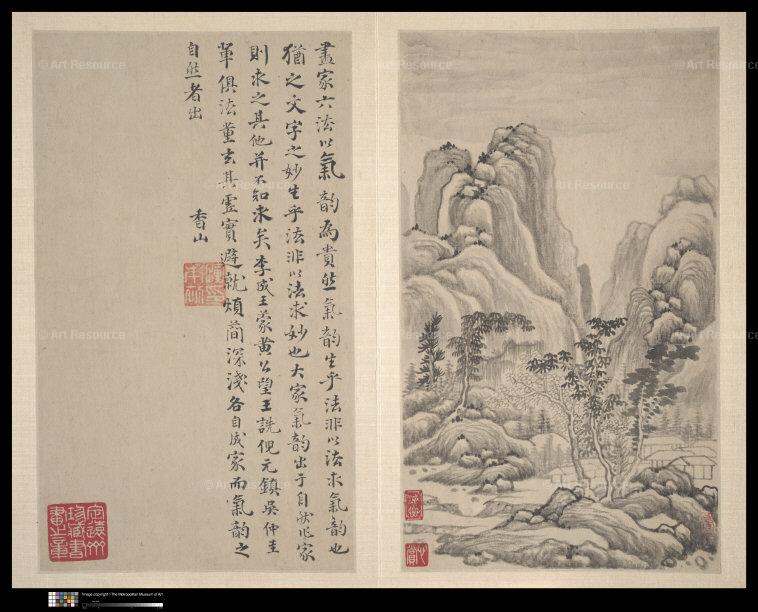 畫家六法以氣韵為貴然氣韵生乎法非以法求氣韵也
猶之文字之妙生乎法非以法求妙也大家氣韵出于自然作家
則求之其他并不知求矣李成王蒙黄公望王詵倪元鎮吳仲圭
軍俱法董玄其虛實避就煩簡深淺各自成家而氣韵之
自然者出
香山
Art Resource
Image copyright The Metropolitan Museum of Art